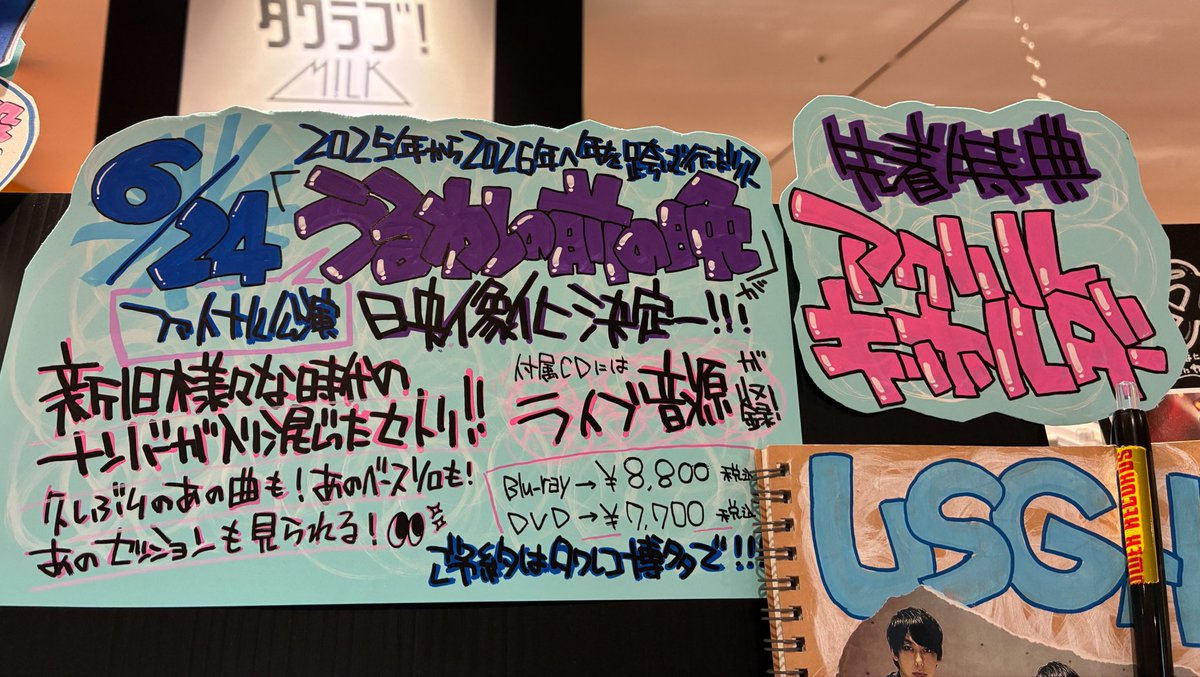 タワラブ!
MILK
2025年から2026年へ年を跨ぎ行われた
6/24
「うるわしの前の晩」
ファイナル公演 映像化決定ー!!!
新旧様々な時代の
ナンバーが入り混じったセトリ!!
付属CDには
ライブ音源
久しぶりのあの曲も!あのベースソロも!
あのセッションも見られる!
Blu-ray→¥8,800 税込
DVD→¥7,700 税込
ご予約はタワレコ博多で!!!
先着特典
アクリル
キーホルダー
USG